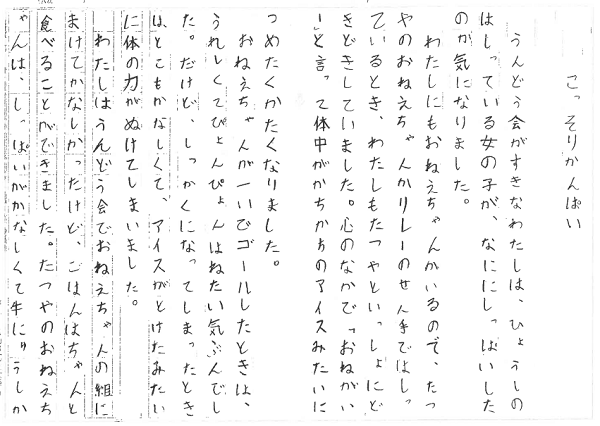 こっそりかんぱい
うんどう会がすきなわたしは、ひょうしの
はしっている女の子が、なににしっぱいした
のか気になりました。
わたしにもおねえちゃんがいるので、たつ
やのおねえちゃんがリレーのせん手ではしっ
ているとき、わたしもたつやといっしょにど
きどきしていました。心のなかで「おねがい
」と言って体中がかちかちのアイスみたいに
つめたくかたくなりました。
おねえちゃんが一いでゴールしたときは、
うれしくてぴょんぴょんはねたい気ぶんでし
た。だけど、しっかくになってしまったとき
はとてもかなしくて、アイスがとけたみたい
に体の力がぬけてしまいました。
わたしはうんどう会でおねえちゃんの組に
まけてかなしかったけど、ごはんはちゃんと
食べることができました。たつやのおねえち
ゃんは、しっぱいがかなしくて牛にゅうしか